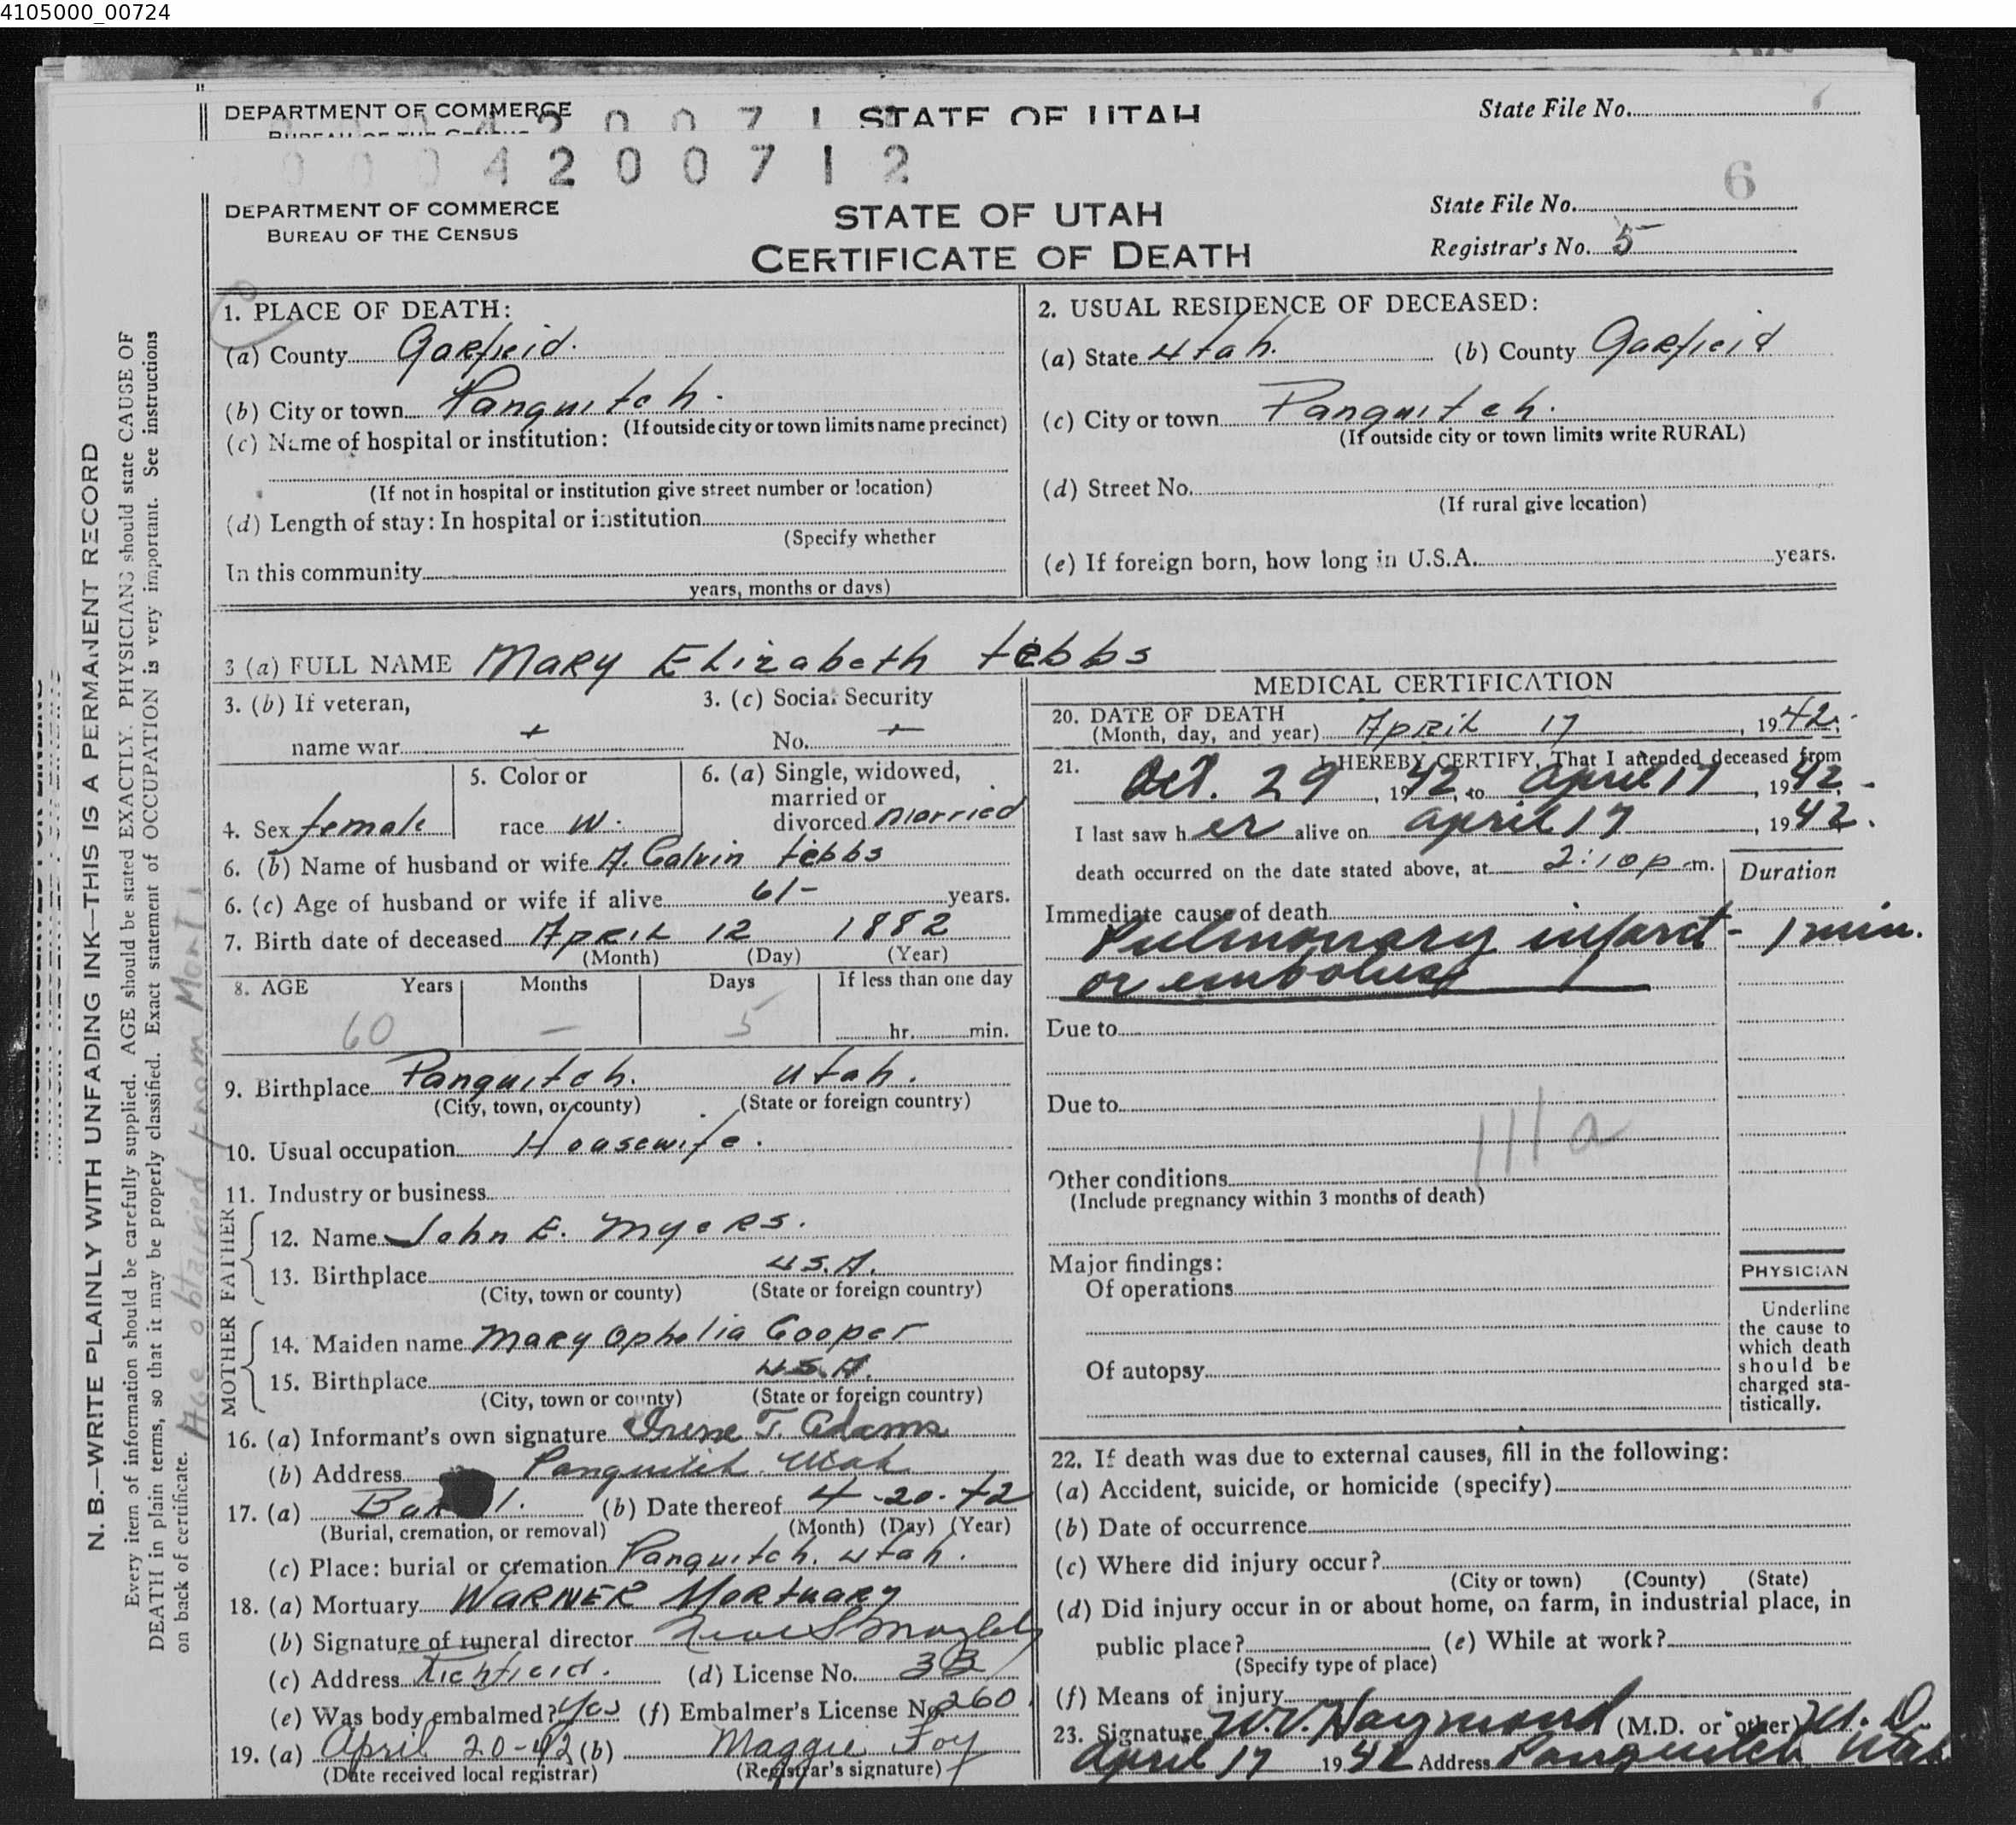 4105000_00724
DEPARTMENT OF COMMERCE
STATE OF UTAH
State File No.
0 0 0 4 2 0 0 7 1 2
6
DEPARTMENT OF COMMERCE
BUREAU OF THE CENSUS
STATE OF UTAH
CERTIFICATE OF DEATH
State File No.
Registrar's No. 5
N. B.—WRITE PLAINLY WITH UNFADING INK—THIS IS A PERMANENT RECORD
Every item of information should be carefully supplied. AGE should be stated EXACTLY. PHYSICIANS should state CAUSE OF
DEATH in plain terms, so that it may be properly classified. Exact statement of OCCUPATION is very important. See instructions
on back of certificate.
Age obtained from Mort.
1. PLACE OF DEATH:
(a) County Garfield.
(b) City or town Panguitch.
(If outside city or town limits name precinct)
(c) Name of hospital or institution:
(If not in hospital or institution give street number or location)
(d) Length of stay: In hospital or institution
(Specify whether
In this community
years, months or days)
2. USUAL RESIDENCE OF DECEASED:
(a) State Utah. (b) County Garfield
(c) City or town Panguitch.
(If outside city or town limits write RURAL)
(d) Street No.
(If rural give location)
(e) If foreign born, how long in U.S.A. years.
3 (a) FULL NAME Mary Elizabeth tebbs
3. (b) If veteran,
name war
3. (c) Social Security
No.
4. Sex female
5. Color or
race W.
6. (a) Single, widowed,
married or
divorced married
6. (b) Name of husband or wife A. Calvin tebbs
6. (c) Age of husband or wife if alive 61- years.
7. Birth date of deceased April 12 1882
(Month) (Day) (Year)
8. AGE Years Months Days If less than one day
60 — 5 hr. min.
9. Birthplace Panguitch. Utah.
(City, town, or county) (State or foreign country)
10. Usual occupation Housewife.
11. Industry or business
FATHER
12. Name John E. Myers.
13. Birthplace U.S.A.
(City, town or county) (State or foreign country)
MOTHER
14. Maiden name Mary Ophelia Cooper
15. Birthplace U.S.A.
(City, town or county) (State or foreign country)
16. (a) Informant's own signature Irene T. Adams
(b) Address Panguitch Utah
17. (a) (b) Date thereof 4-20-42
(Burial, cremation, or removal) (Month) (Day) (Year)
(c) Place: burial or cremation Panguitch. Utah.
18. (a) Mortuary Warner Mortuary
(b) Signature of funeral director
(c) Address Richfield. (d) License No. 33
(e) Was body embalmed? Yes (f) Embalmer's License No. 260
19. (a) April 20-42 (b) Maggie Foy
(Date received local registrar) (Registrar's signature)
MEDICAL CERTIFICATION
20. DATE OF DEATH
(Month, day, and year) April 17, 1942.
21. I HEREBY CERTIFY, That I attended deceased from
Oct. 29, 1942, to April 17, 1942.
I last saw her alive on April 17, 1942.
death occurred on the date stated above, at 2:10 p m.
Duration
Immediate cause of death
Pulmonary infarct - 1 min.
or embolus
Due to
Due to
111a
Other conditions
(Include pregnancy within 3 months of death)
Major findings:
Of operations
Of autopsy
PHYSICIAN
Underline
the cause to
which death
should be
charged sta-
tistically.
22. If death was due to external causes, fill in the following:
(a) Accident, suicide, or homicide (specify)
(b) Date of occurrence
(c) Where did injury occur?
(City or town) (County) (State)
(d) Did injury occur in or about home, on farm, in industrial place, in
public place? (e) While at work?
(Specify type of place)
(f) Means of injury
23. Signature W.V. Haymond (M.D. or other) M.D.
April 17 1942 Address Panguitch Utah